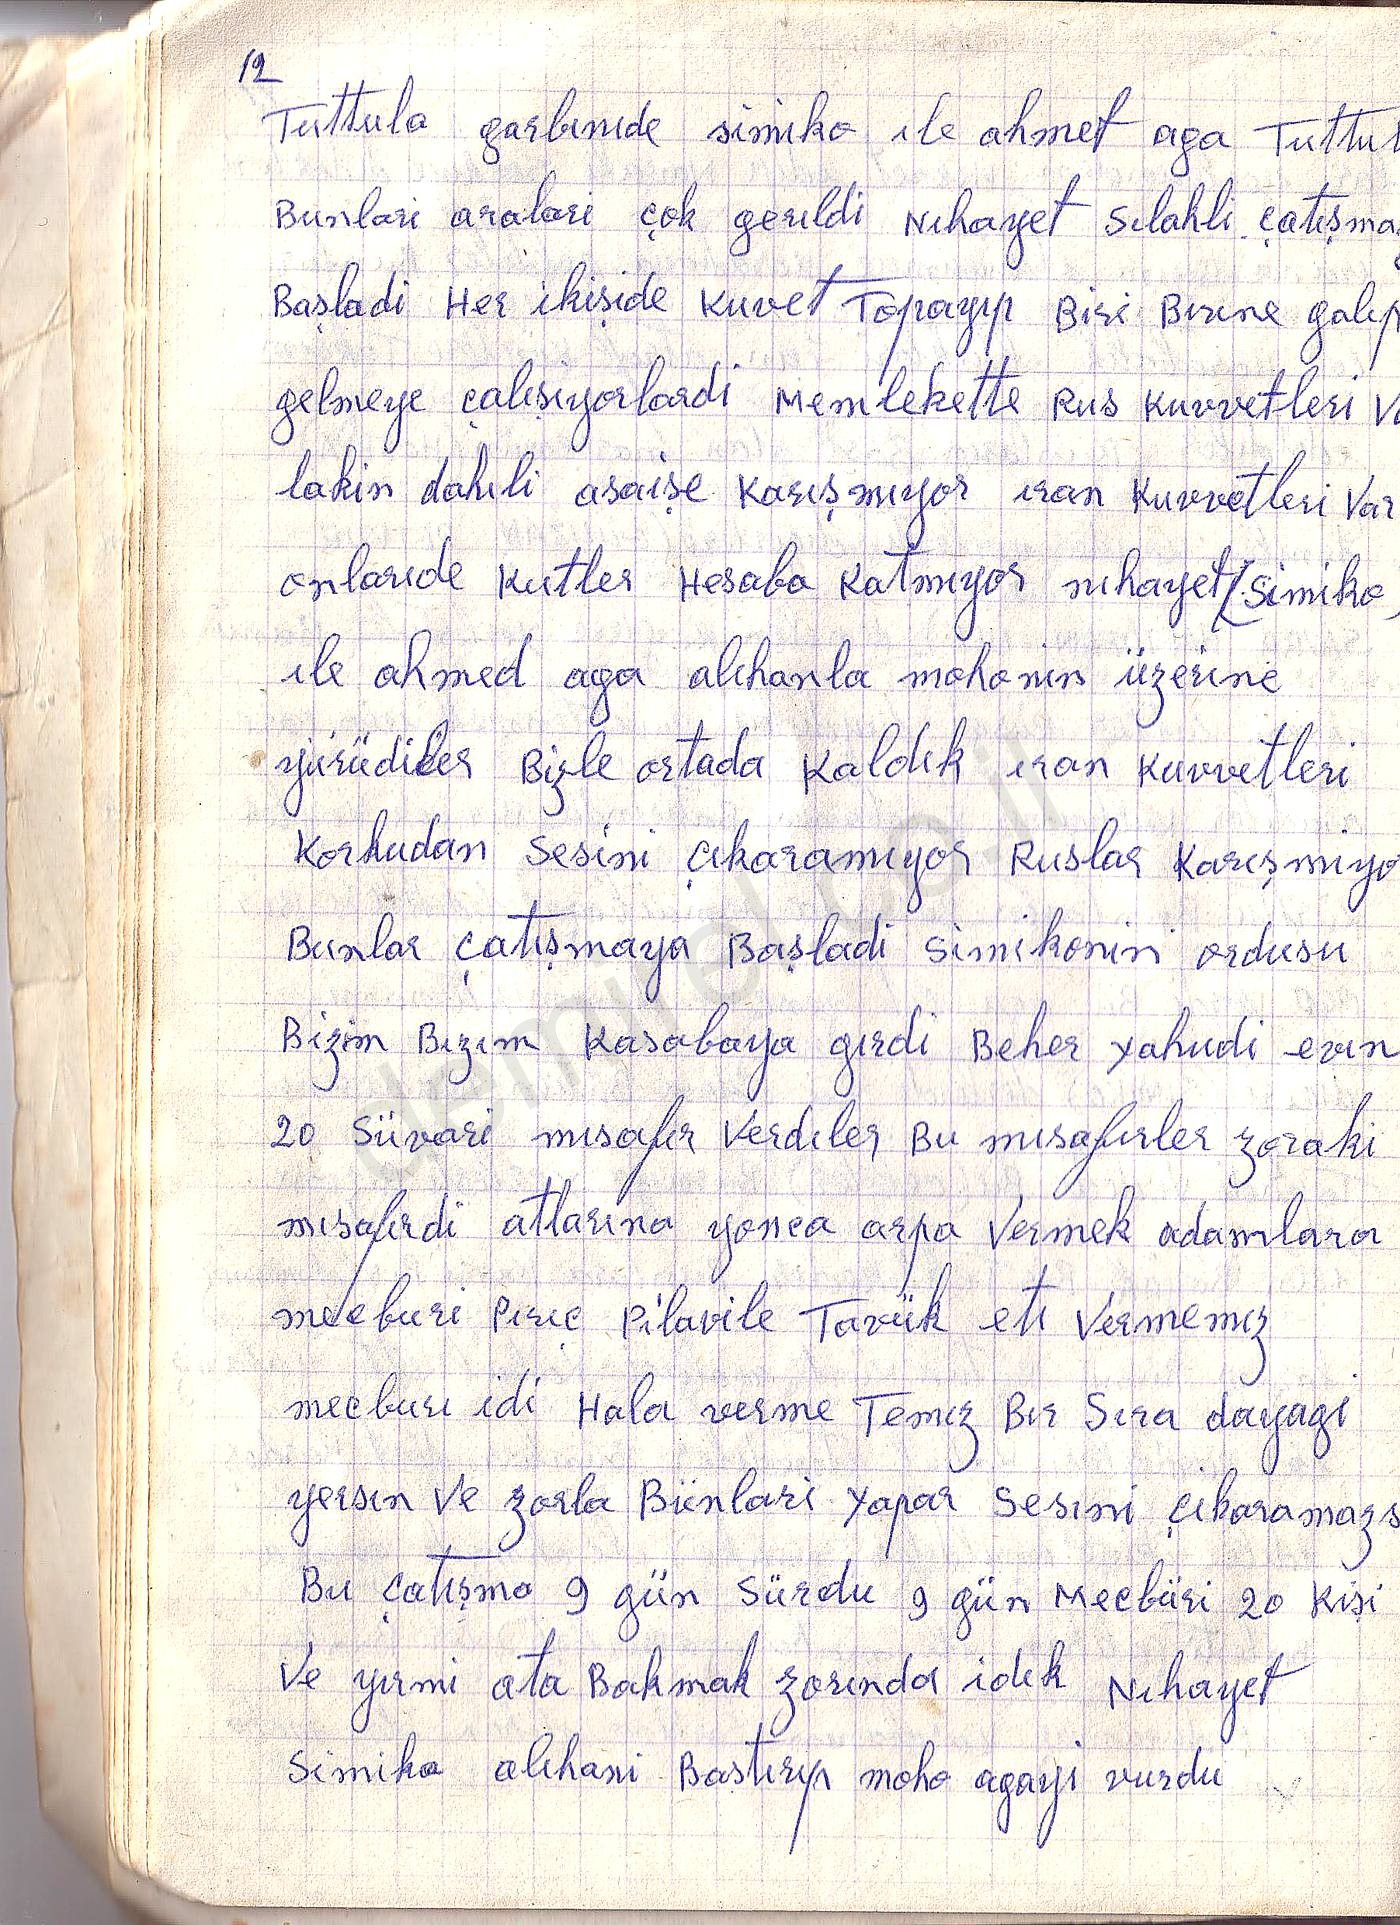 12
Tuttula garbınıde simiko ıle ahmet aga Tuttul
Bunlari aralari çok gerıldi Nıhayet Sılahli çatışmay
Başladi Her ikişide Kuvet Topayıp Biri Bırıne galıp
gelmeye çalışıyorlardi Memlekette Rus Kuvvetleri Va
lakin dahıli asaişe Karışmıyor ıran Kuvvetleri Var
onlarıde Kutler Hesaba Katmıyor nıhayet (Simiko,
ıle ahmed aga alıhanla mohonın üzerıne
yürüdiler Bizle ortada Kaldık ıran Kuvvetleri
Korkudan Sesini çıkaramıyor Ruslar Karışmiyo
Bunlar çatışmaya Başladi Simikonin ordusu
Bizim Bızım Kasabaya gırdi Beher Yahudi evın
20 Süvari mısafır Verdıler Bu mısafırler zoraki
mısafırdi atlarına yonca arpa Vermek adamlara
mecburi Pırıç Pilavile Tavük etı Vermemız
mecburı idi Hala verme Temız Bır Sıra dayagi
yersın Ve zorla Bünlari Yapar Sesıni çıkaramazs
Bu çatışma 9 gün Sürdu 9 gün Mecbüri 20 Kişi
Ve yırmi ata Bakmak zorında idık Nıhayet
Simiko alıhani Bastırıp moho agayi vurdu
demirel.co.il